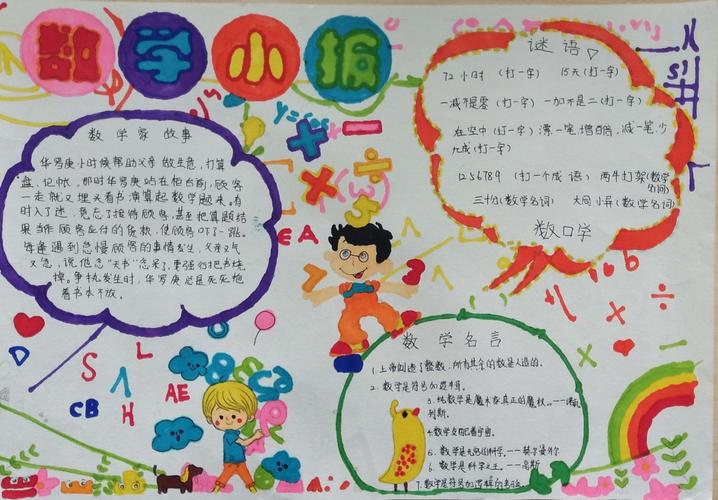 数学小报
数学家故事
华罗庚小时候帮助父母做生意,打算
盘、记帐。那时华罗庚站在柜台前,顾客
一走就又埋头看书演算起数学题来。有
时入了迷,竟忘了接待顾客,甚至把算题结
果当作顾客应付的货款,使顾客吓了一跳。
每逢遇到怠慢顾客的事情发生,父亲又气
又急,说他念“天书”念呆了,要强行把书烧
掉。争执发生时,华罗庚总是死死地
着书本不放。
谜语
72小时(打一字) 15天(打一字)
一减不是零(打一字) 一加不是二(打一字)
在空中(打一字) 漂一笔,增百倍,减一笔,少
九成(打一字)
1256789(打一个成语) 两牛打架(数学
名词)
三十分(数学名词) 大同小异(数学名词)
数口学
y=cos
∈A
D
S
L
CB
H
AE
数学名言
1.上帝创造了整数,所有其余的数是人造的。
2.数学是符号加逻辑。
3.纯数学是魔术家真正的魔杖。——诺瓦
利斯
4.数学支配着宇宙。
5.数学是无穷的科学。——赫尔曼外尔
6.数学是科学之王。——高斯
7.数学是符号加逻辑的